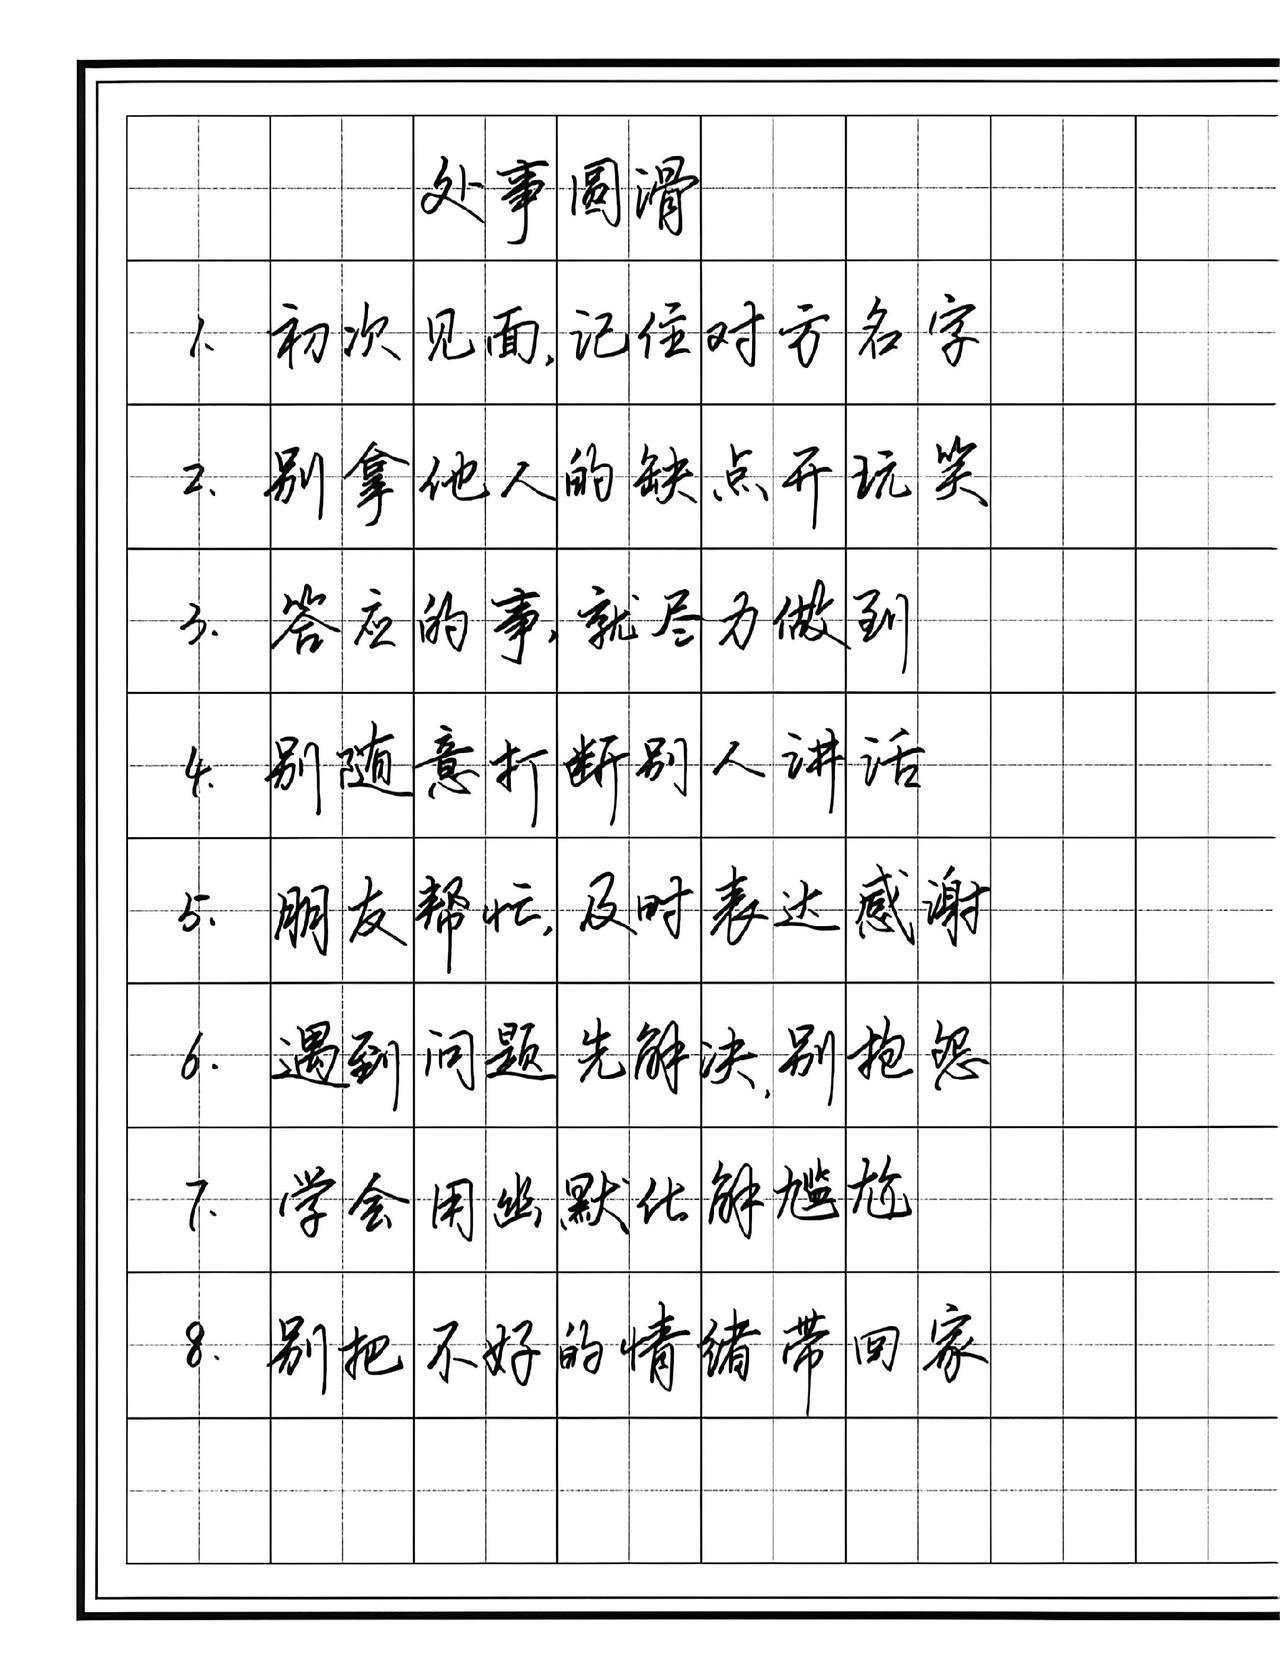 处事圆滑
1. 初次见面,记住对方名字
2. 别拿他人的缺点开玩笑
3. 答应的事,就尽力做到
4. 别随意打断别人讲话
5. 朋友帮忙,及时表达感谢
6. 遇到问题先解决,别抱怨
7. 学会用幽默化解尴尬
8. 别把不好的情绪带回家